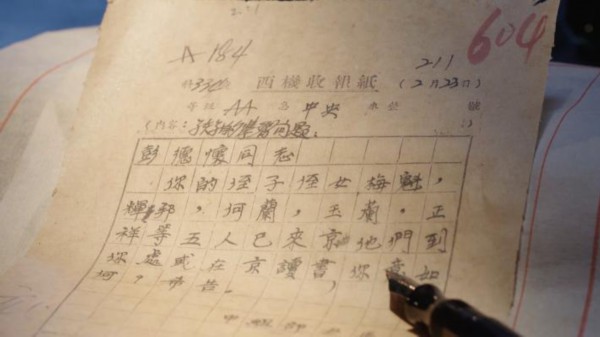 211
A-184
604
211
西機收報紙 (2月23日)
等級 AA 由 中央
(內容:
彭德懷同志
你的侄子侄女梅魁,
輝邦,何蘭,玉蘭,正
祥等五人已來京他們到
你處或在京讀書,你意如
何?希告。